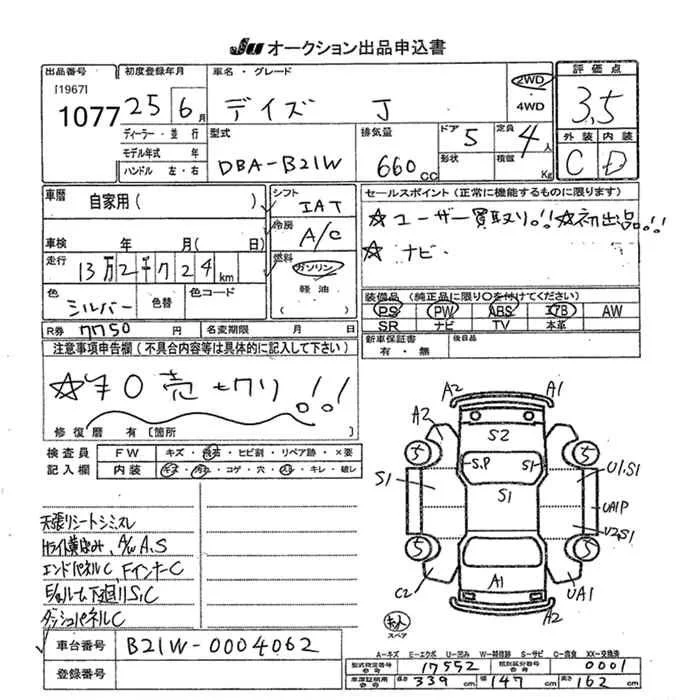 JU オークション出品申込書
出品番号 初度登録年月 車名・グレード 評価点
[1967] 1077
25 6月 デイズ J 2WD 4WD 3,5
ディーラー・並行
モデル年式 年
ハンドル 左・右
型式 排気量 ドア 5 定員 4人 外装 内装
DBA-B21W 660CC 形状 積載 Kg C D
車歴 自家用( )
シフト IAT
冷房 A/C
車検 年 月( 日)
走行 13万2千724km
燃料 ガソリン 軽油 ( )
色 シルバー 色替 色コード
R券 7750 円 名変期限 月 日
セールスポイント(正常に機能するものに限ります)
☆ユーザー買取り!!☆初出品!!
☆ナビ
装備品(純正品に限り〇を付けてください)
PS PW ABS エアB AW
SR ナビ TV 本革
新車保証書 有・無 後日品
注意事項申告欄(不具合内容等は具体的に記入して下さい)
☆¥0売セリ!!
修復歴 有 〔箇所
検査員記入欄
FW キズ・飛石・ヒビ割・リペア跡・×要
内装 キズ・汚れ・コゲ・穴・スレ・キレ・破レ
天張リシートシミスレ
Hライト黄ばみ、A/W A、S
エンドパネルC、FインナーC
E/gルーム下廻リS、C
ダッシュパネルC
車台番号 B21W-0004062
登録番号
A2 A1
A2 S2
5 S.P S1 5 U1.S1
S1 S1 UA1P
U2,S1
5 5
C2 A1 UA1
A2
スペア
A-キズ E-エクボ U-凹み W-補修跡 S-サビ C-腐食 XX-交換済
型式指定番号 参考 17552 類別区分番号 参考 0001
車庫証明用 参考 長さ 339cm 幅 147cm 高さ 162cm